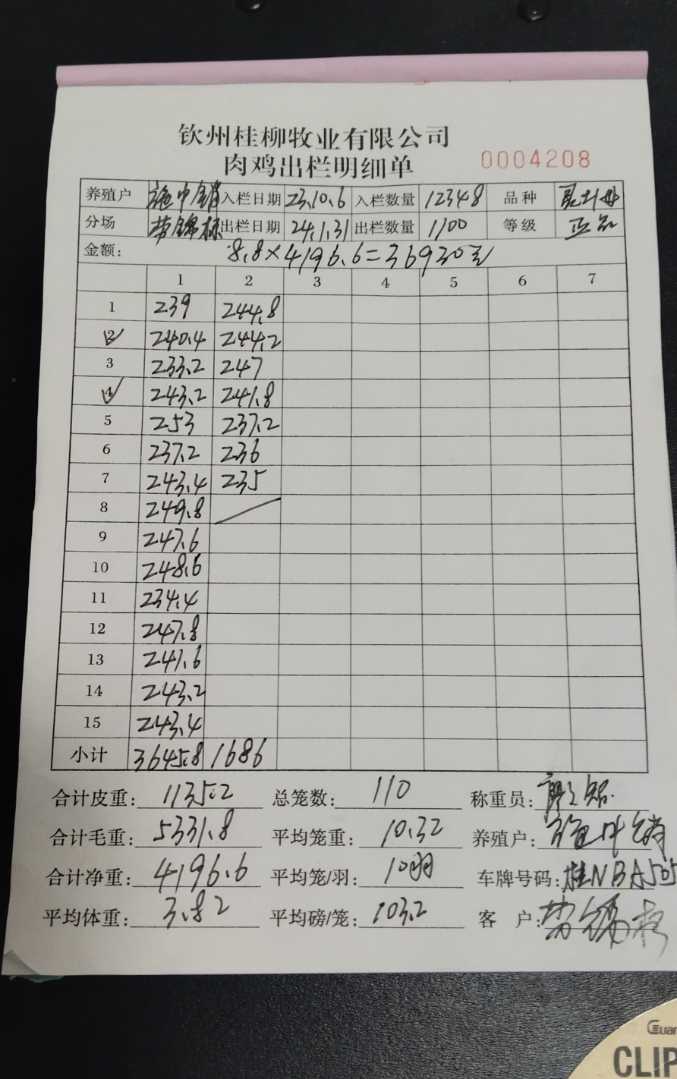 钦州桂柳牧业有限公司
肉鸡出栏明细单 0004208
养殖户 施中销 入栏日期 23.10.6 入栏数量 12348 品种
分场 劳锦标 出栏日期 24.1.31 出栏数量 1100 等级 正品
金额: 8.8×4196.6=36930元
1 2 3 4 5 6 7
1 239 244.8
2 240.4 244.2
3 233.2 247
4 243.2 241.8
5 253 237.2
6 237.2 236
7 243.4 235
8 249.8
9 247.6
10 248.6
11 234.4
12 247.8
13 241.6
14 243.2
15 243.4
小计 3645.8 1686
合计皮重: 1135.2 总笼数: 110 称重员:
合计毛重: 5331.8 平均笼重: 10.32 养殖户: 施中销
合计净重: 4196.6 平均笼/羽: 10羽 车牌号码: 桂NBA505
平均体重: 3.82 平均磅/笼: 103.2 客户:
Guan
CLIP